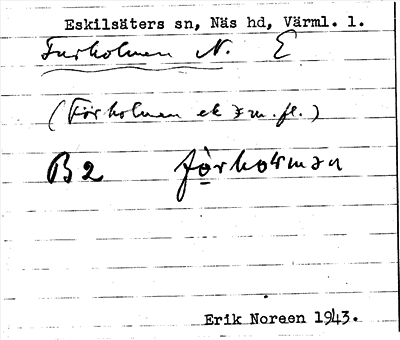 Eskilsäters sn, Näs hd, Värml. l.
Furholmen N. E
(Förholmen ek m. fl.)
B2
Erik Noreen 1943.